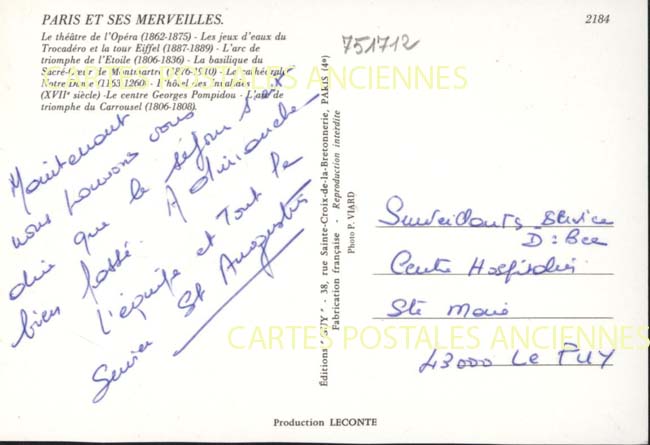 PARIS ET SES MERVEILLES.
2184
Le théâtre de l'Opéra (1862-1875) - Les jeux d'eaux du
Trocadéro et la tour Eiffel (1887-1889) - L'arc de
triomphe de l'Etoile (1806-1836) - La basilique du
Sacré-Cœur de Montmartre (1876-1910) - La cathédrale
Notre-Dame (1163-1260) - l'hôtel des Invalides
(XVIIe siècle) - Le centre Georges Pompidou - L'arc de
triomphe du Carrousel (1806-1808).
751712
CARTES POSTALES ANCIENNES
Maintenant
nous pouvons vous
dire que le séjour s'est
bien passé. A dimanche
L'équipe et tout le
Service St Augustin
Éditions "GUY" - 38, rue Sainte-Croix-de-la-Bretonnerie, PARIS (4e)
Fabrication française - Reproduction interdite
Photo P. VIARD
Surveillants Service
Centre Hospitalier
Ste Marie
43000 LE PUY
CARTES POSTALES ANCIENNES
Production LECONTE